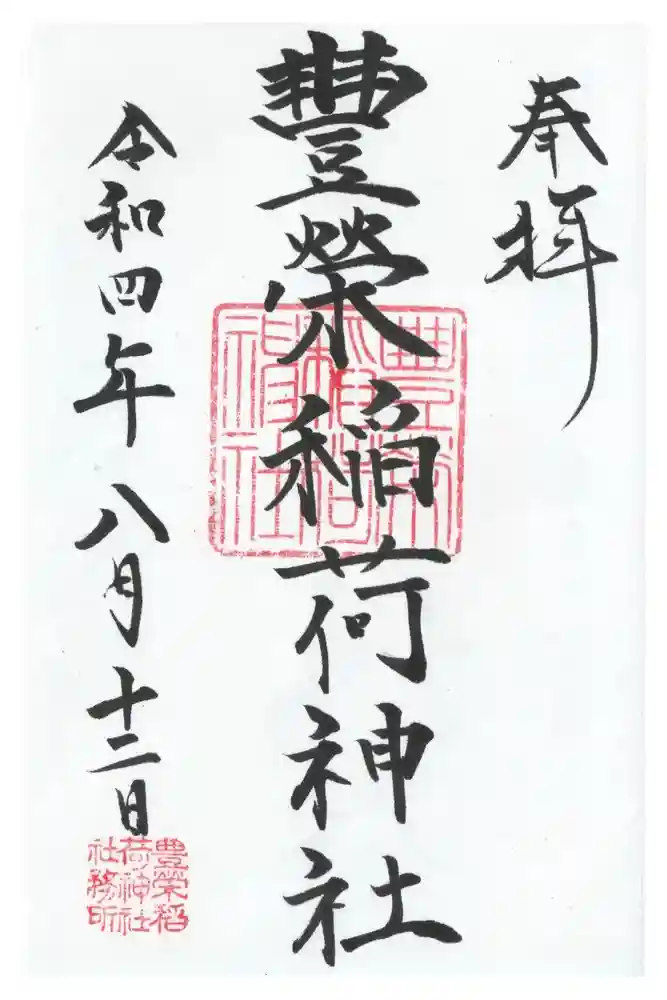 奉拝
豐榮稲荷神社
豊栄稲荷神社
令和四年八月十二日
豊榮稲
荷神社
社務所